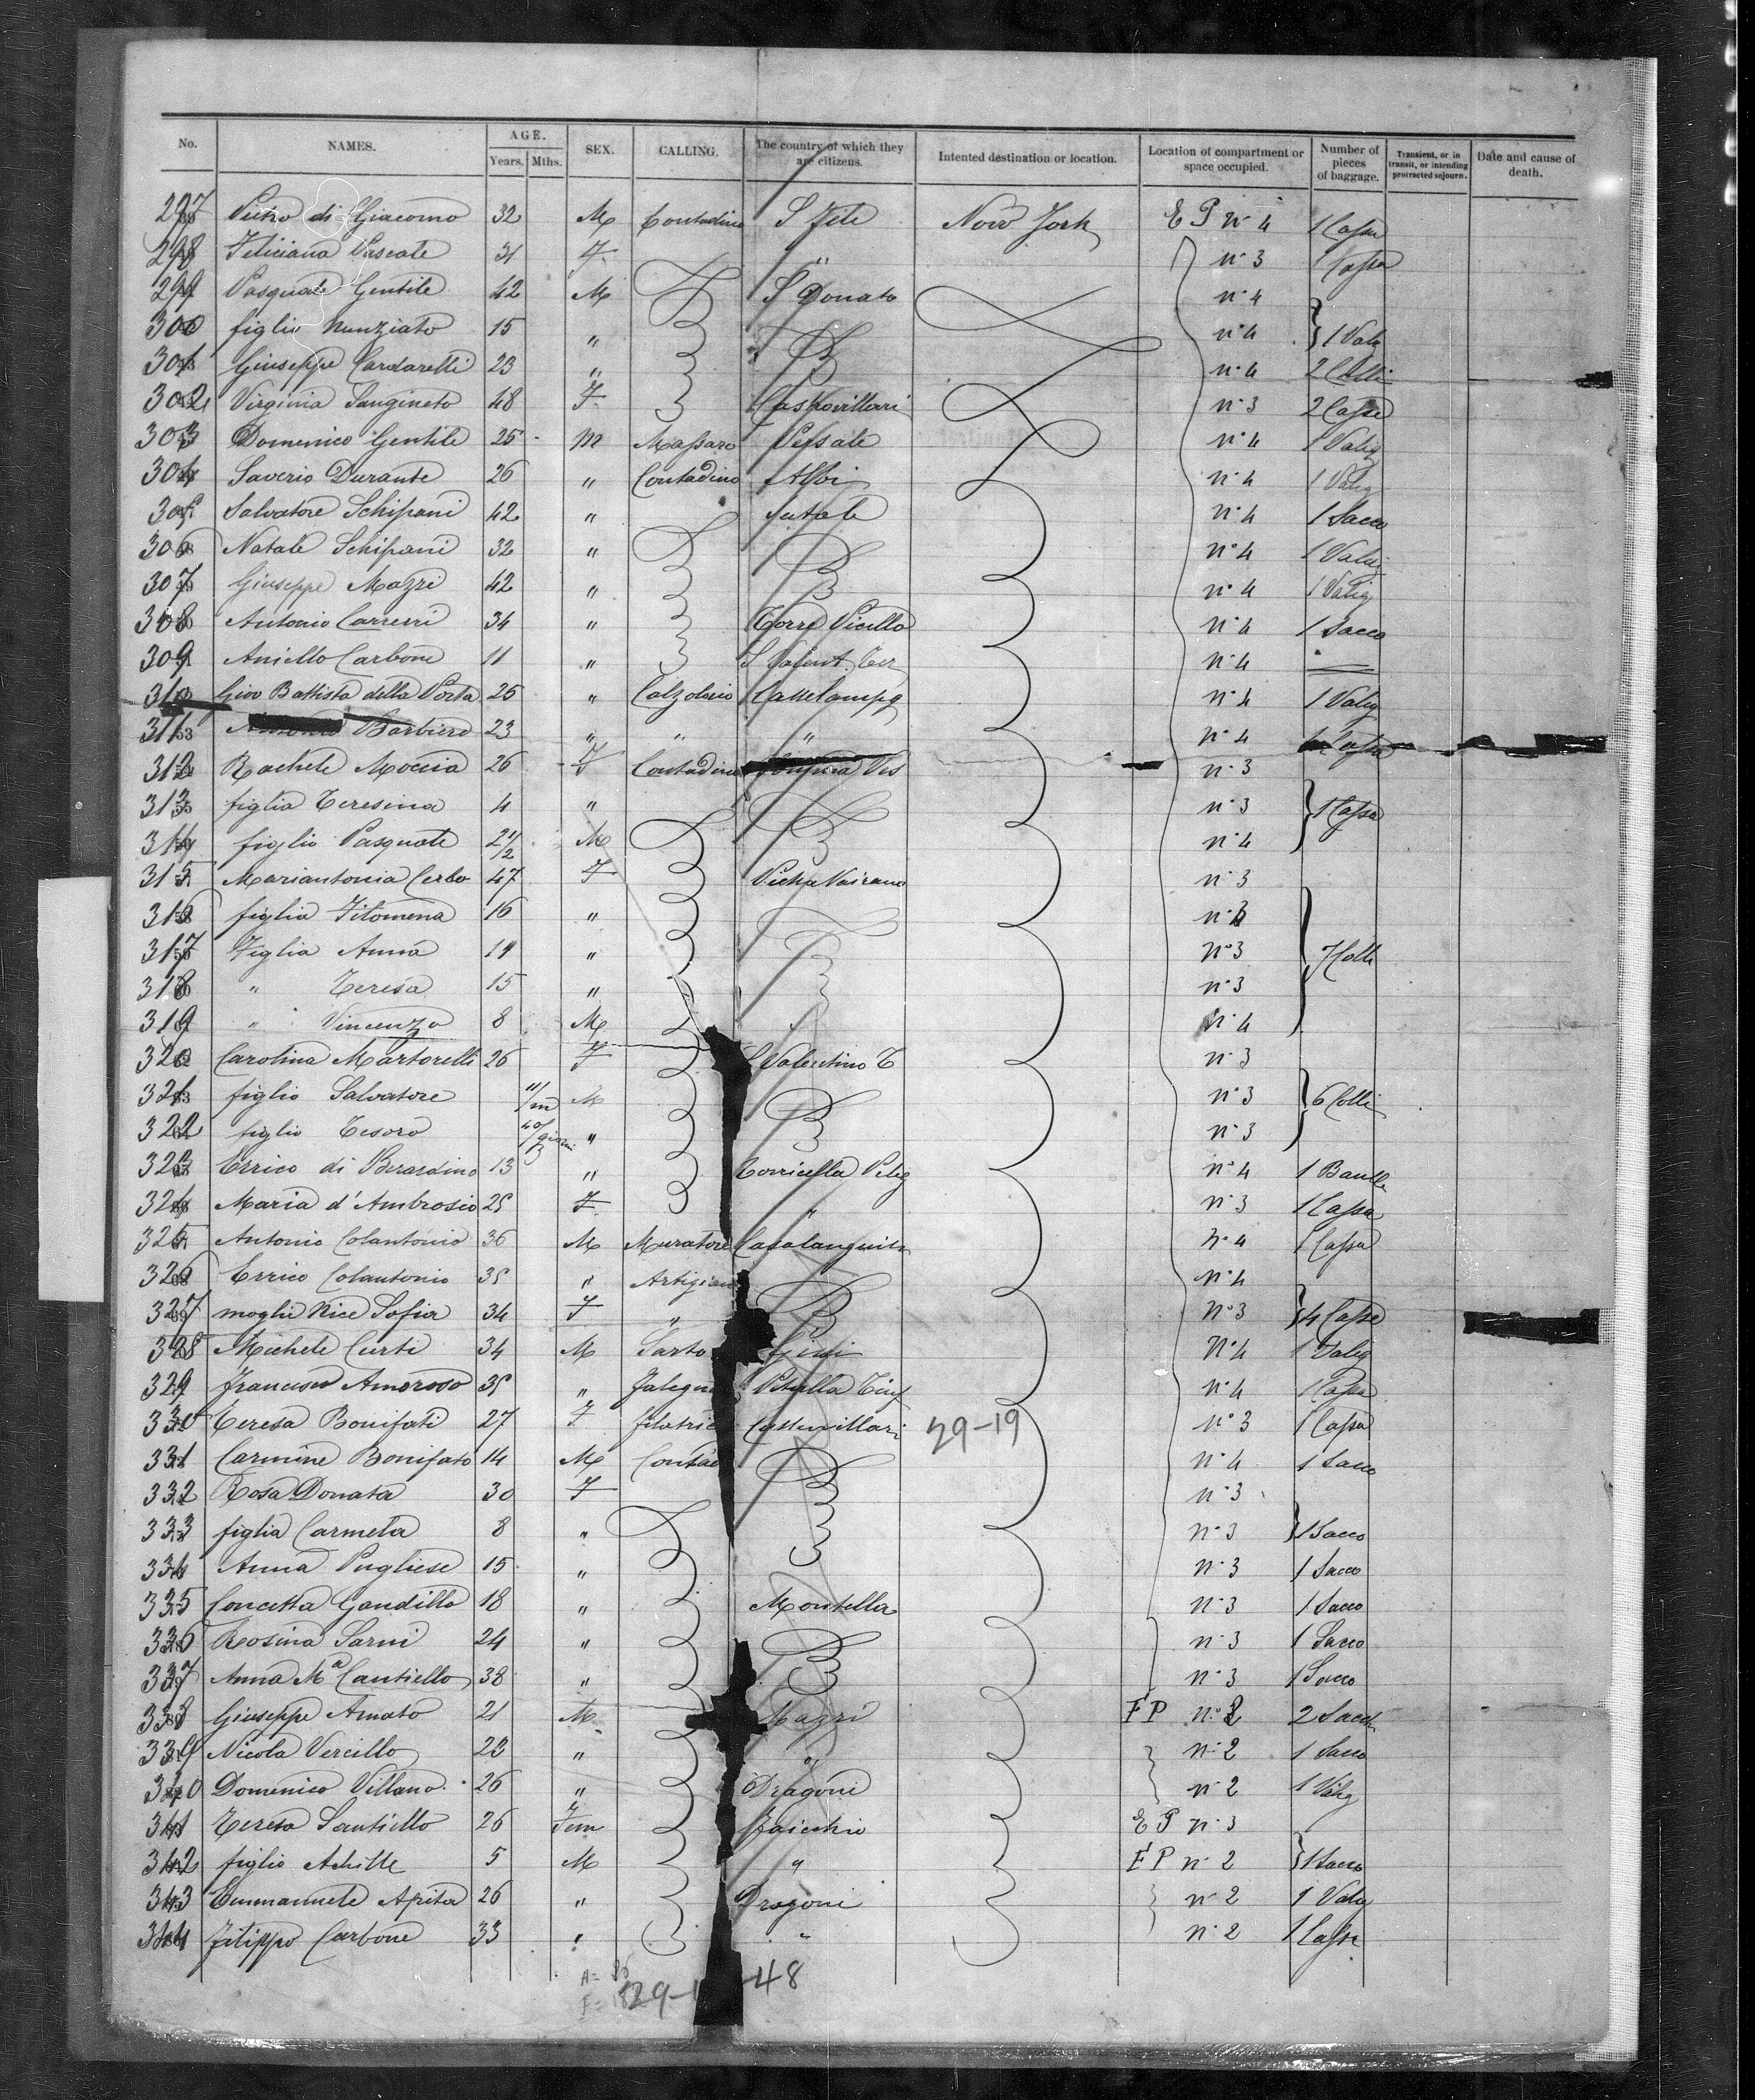 No. NAMES. AGE. Years. Mths. SEX. CALLING. The country of which they are citizens. Intented destination or location. Location of compartment or space occupied. Number of pieces of baggage. Transient, or in transit, or intending protracted sojourn. Date and cause of death.
297 Pietro di Giacomo 32 M Contadino S Vito New York E P n° 4 1 Cassa
298 Feliciana 31 F " n° 3 1 Cassa
299 Pasquale Gentile 42 M S Donato n° 4
300 figlio Nunziato 15 " n° 4 1 Valig
301 Giuseppe Cardarelli 23 " n° 4 2 Colli
302 Virginia Sangineto 48 F Castrovillari n° 3 2 Casse
303 Domenico Gentile 25 M Massaro n° 4 1 Valig
304 Saverio Durante 26 " Contadino Albi n° 4 1 Valig
305 Salvatore Schipani 42 " n° 4 1 Sacco
306 Natale Schipani 32 " n° 4 1 Valig
307 Giuseppe Mazzei 42 " n° 4 1 Valig
308 Antonio 34 " n° 4 1 Sacco
309 Aniello Carbone 11 " S Valent. Tor n° 4
310 Giov Battista della Porta 25 " Calzolaio n° 4 1 Valig
311 Barbiero 23 " " " n° 4
312 Rachele Moccia 26 F Contadina n° 3
313 figlia Teresina 4 " n° 3 1 Cassa
314 figlio Pasquale 2 1/2 M n° 4
315 Mariantonia Cerbo 47 F Vairano n° 3
316 figlia Filomena 16 " n° 3
317 Figlia Anna 11 " n° 3 7 Colli
318 " Teresa 15 " n° 3
319 " Vincenzo 8 M n° 4
320 Carolina Martorelli 26 F S Valentino T n° 3
321 figlio Salvatore 11/m M n° 3 6 Colli
322 figlio Tesoro 40/giorni " n° 3
323 Errico di Berardino 13 " Torricella Pelig n° 4 1 Baulle
324 Maria d'Ambrosio 25 F " n° 3 1 Cassa
325 Antonio Colantonio 36 M Muratore Casalanguida n° 4 1 Cassa
326 Errico Colantonio 35 " Artigian n° 4
327 moglie Nice Sofia 34 F " n° 3 4 Casse
328 Michele Curti 34 M Sarto n° 4 1 Valig
329 Francesco Amoroso 35 " n° 4 1 Cassa
330 Teresa Bonifati 27 F filatrice Castrovillari 29-19 n° 3 1 Cassa
331 Carmine Bonifato 14 M Contad n° 4 1 Sacco
332 Rosa Donata 30 F n° 3
333 figlia Carmela 8 " n° 3 1 Sacco
334 Anna Pugliese 15 " n° 3 1 Sacco
335 Concetta Gandillo 18 " Montella n° 3 1 Sacco
336 Rosina Sarni 24 " n° 3 1 Sacco
337 Anna Mª Cantiello 38 " n° 3 1 Sacco
338 Giuseppe Amato 21 M F P n° 2 2 Sacchi
339 Nicola Vercillo 22 " " n° 2 1 Sacco
340 Domenico Villano 26 " Dragoni n° 2 1 Valig
341 Teresa Santiello 26 Fem Faicchio E P n° 3
342 figlio Achille 5 M " F P n° 2 1 Sacco
343 Emmanuele Aprita 26 " Dragoni n° 2 1 Valig
344 Filippo Carbone 33 " " n° 2 1 Cassa
48